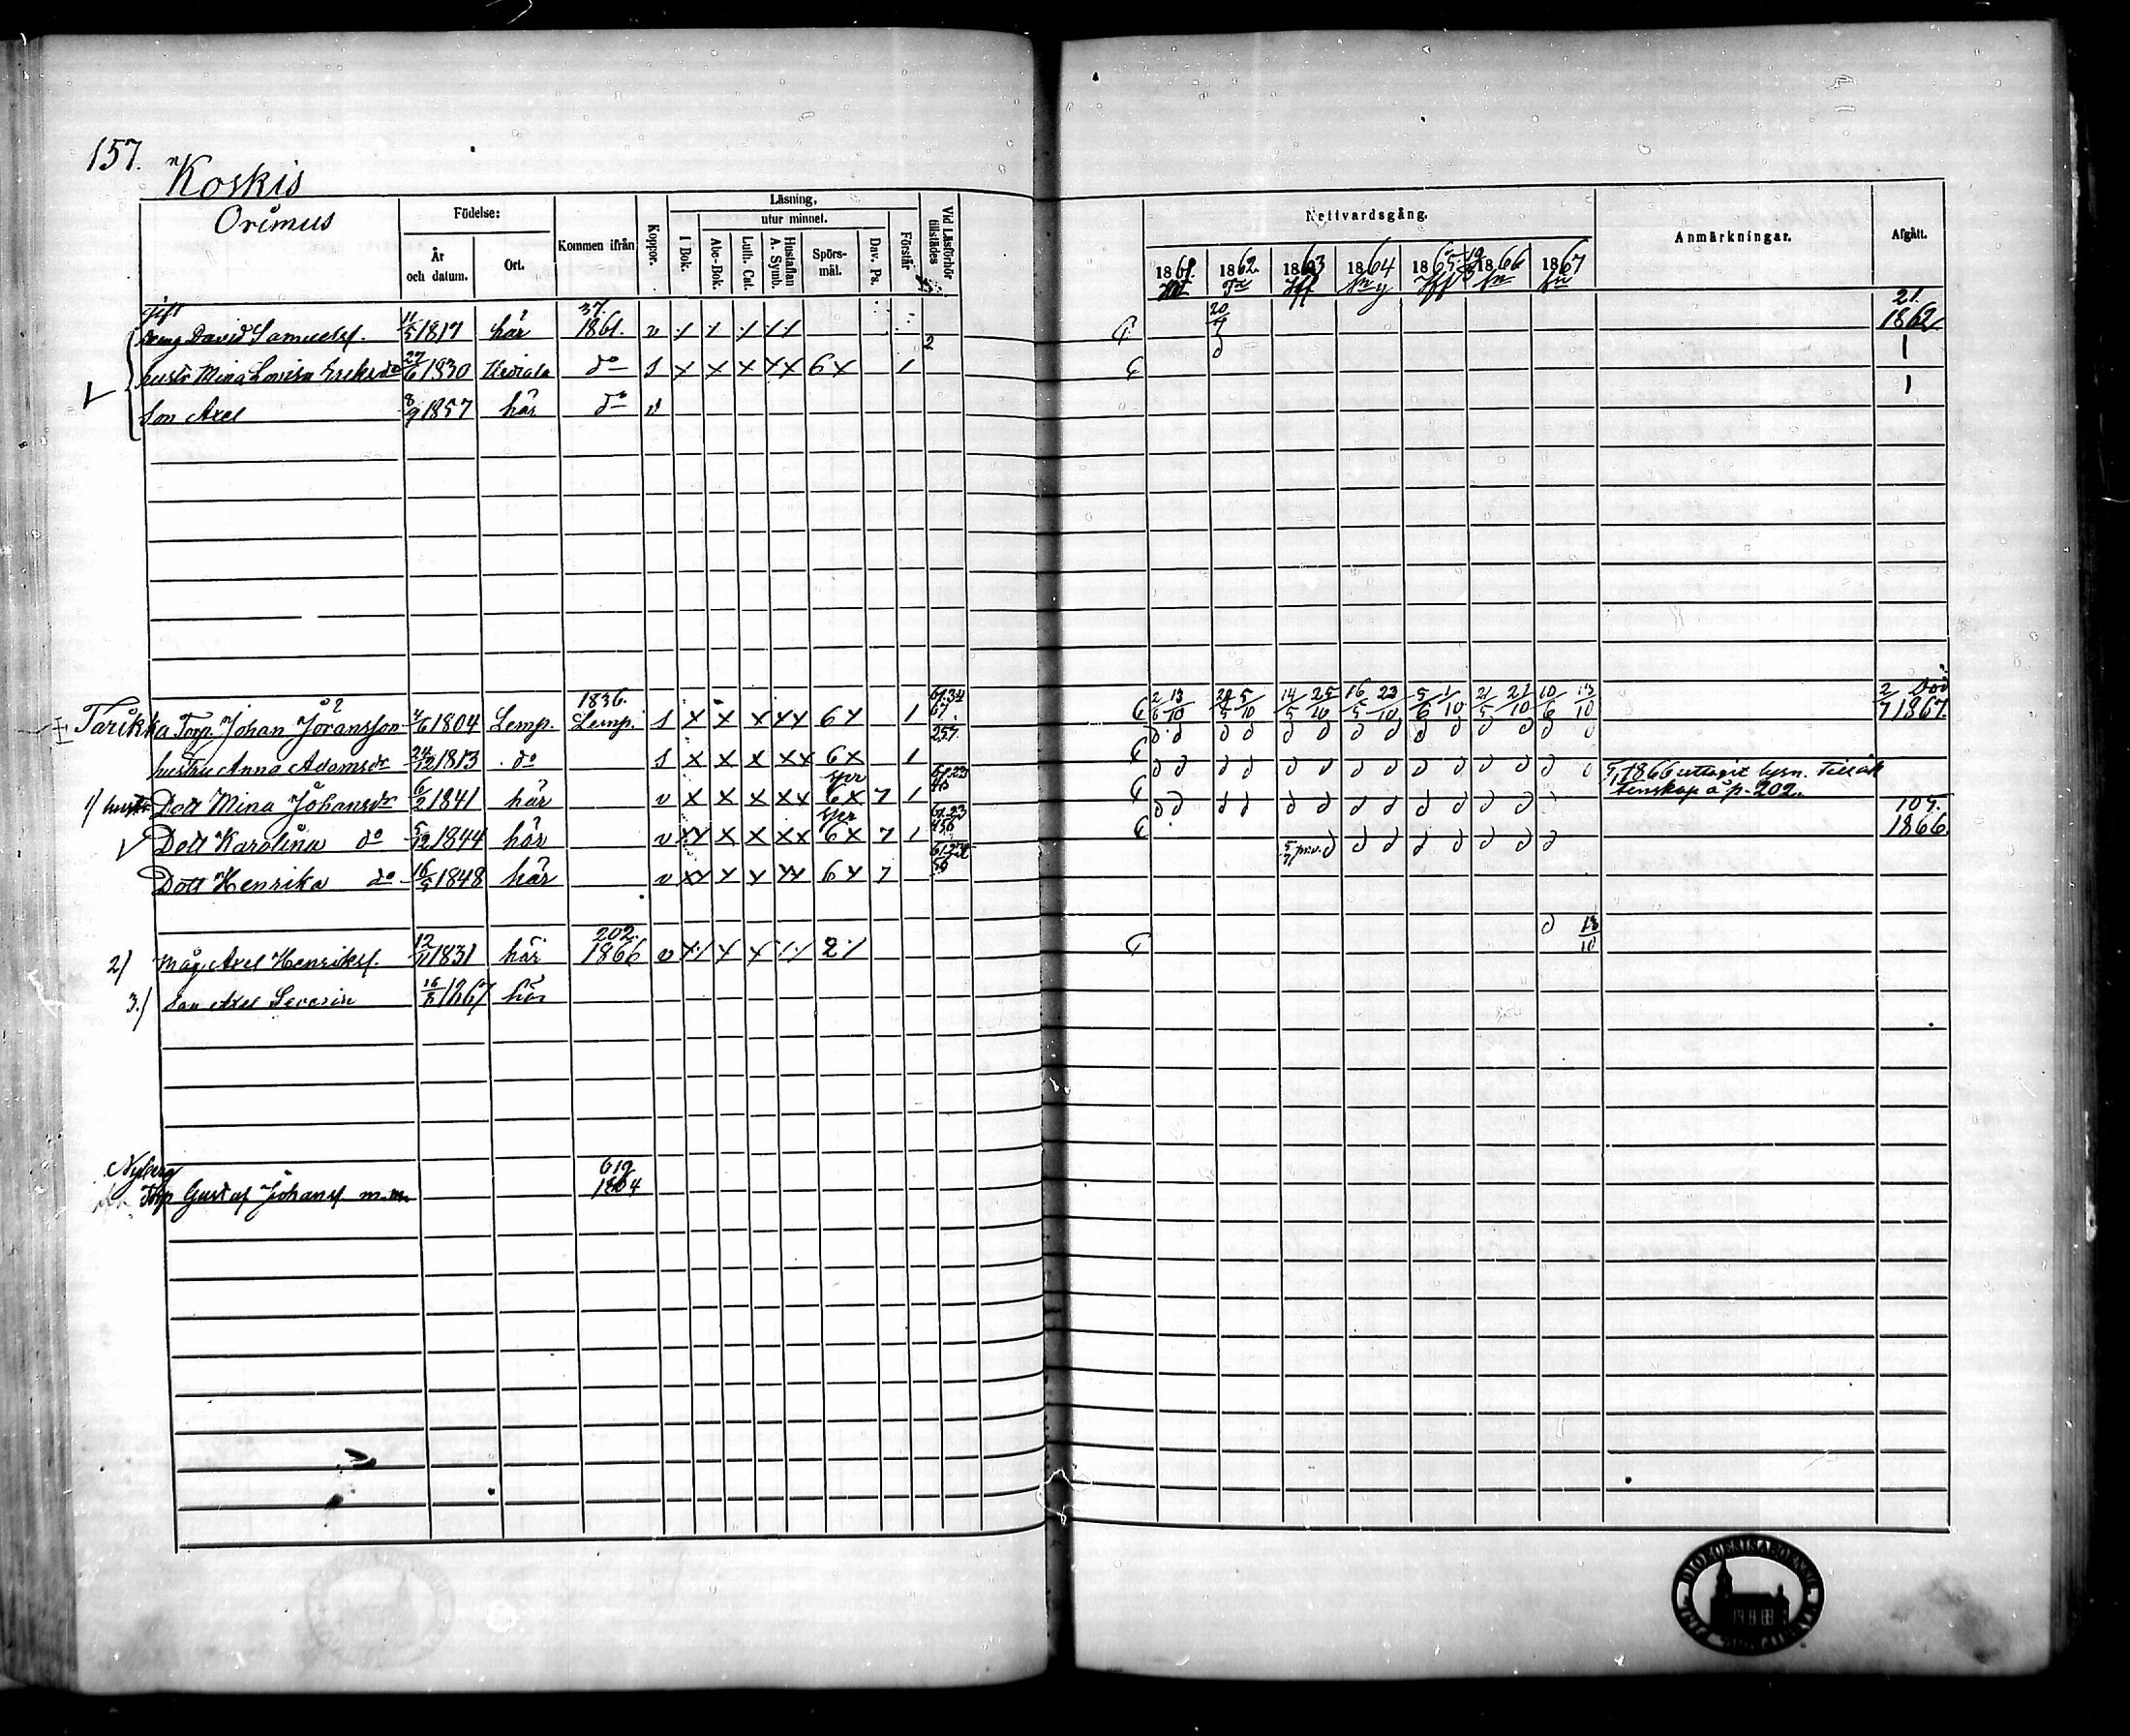 157.
Koskis
Orimus
Födelse:
År och datum.
Ort.
Kommen ifrån
Koppor.
Läsning,
utur minnet.
I Bok.
Abc-Bok.
Luth. Cat.
Hustaflan A. Symb.
Spörs-mål.
Dav. Ps.
Förstår
Vid Läsförhör tillstädes
Nattvardsgång.
1861. 1862. 1863 1864 1865 1866 1867
Anmärkningar.
Afgått.
gift 37. 21.
Dreng David Samuelsf. 11/5 1817 här 1861. v 20/7 1862
hustr Mina Lovisa Eriksdr 27/6 1830 do s x x x xx 6x 1
Son Axel 8/9 1857 här do v
1836. 61.34 2/6 13/10 5/10 14/5 25/10 16/5 23/10 5/6 1/10 21/5 21/10 10/6 13/10 2/7 Död
Tarikka Torp. Johan Jöransson 1804 Lemp. Lemp. s x x x xx 6x 1 67. 1867.
257.
hustru Anna Adamsdr 24/12 1813 do s x x x xx 6x 1
5/1 1866 uttagit lysn. till äk
1) hustr Dott Mina Johansdr 6/2 1841 här v x x x xx 6x 7 1 tenskap å p. 202.
61.23 107.
Dott Karolina do 5/12 1844 här v xx x x xx 6x 7 1 456 1866
Dott Henrika do 16/5 1848 här v xx x x xx 6x 7 56
202. 13/10
2) Måg Axel Henriksf. 12/11 1831 här 1866 v
3.) Son Axel Severin 16/8 1867 här
Nyberg 619
Torp Gustaf Johansf. m.m. 1864